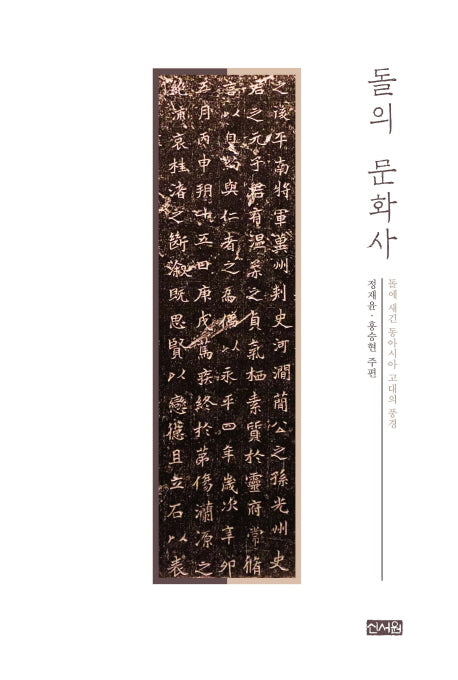 돌의 문화사
돌에 새긴 동아시아 고대의 풍경
정재윤·홍승현 주편
之後平南將軍冀州刺史河澗簡公之孫光州史
君之元子君有溫柔之貞氣栖素質於靈府常脩
言以自公與仁者之爲 以永平四年歲次辛卯
五月丙申朔十五日庚戌篤疾終於第傷瀾源之
純浦哀桂渚之斷 旣思賢以戀德且立石以表
신서원